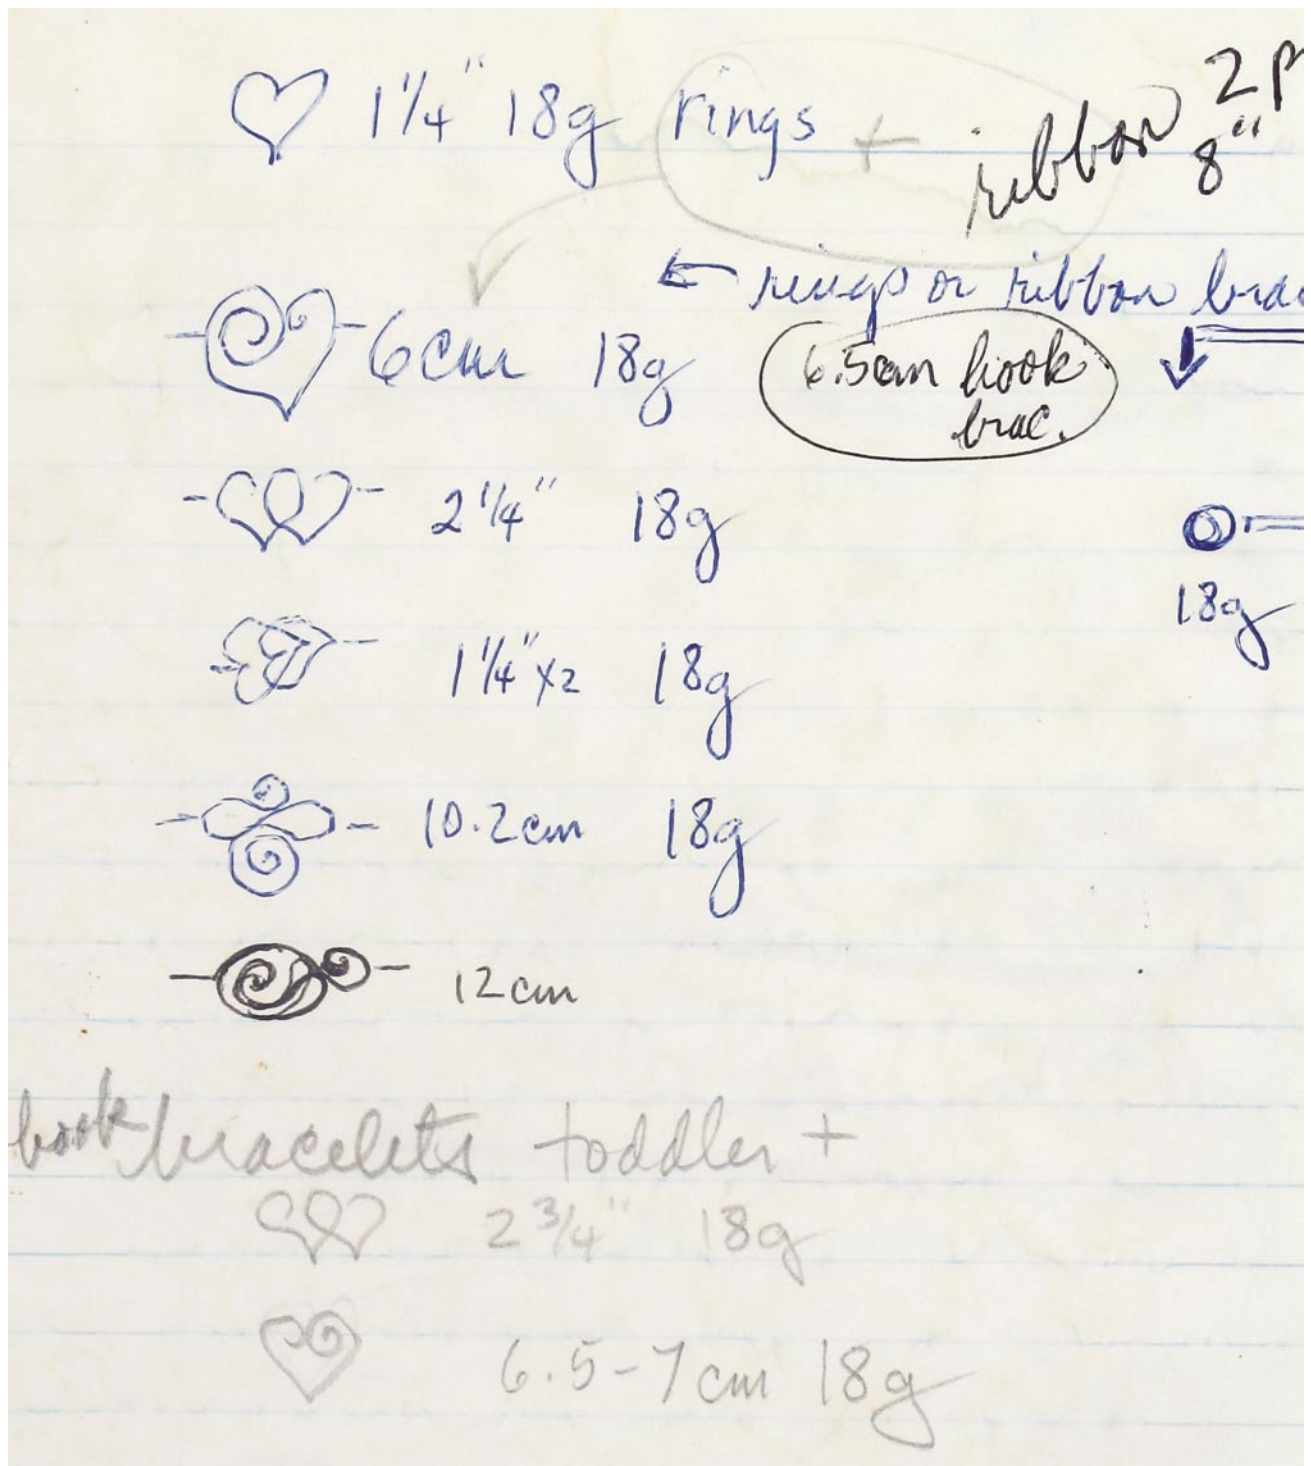 1 1/4" 18g rings + ribbon 2
8"
← rings or ribbon
6cm 18g 6.5cm hook
brac.
2 1/4" 18g
18g
1 1/4" x2 18g
10.2cm 18g
12cm
hook bracelets toddler +
2 3/4" 18g
6.5-7cm 18g